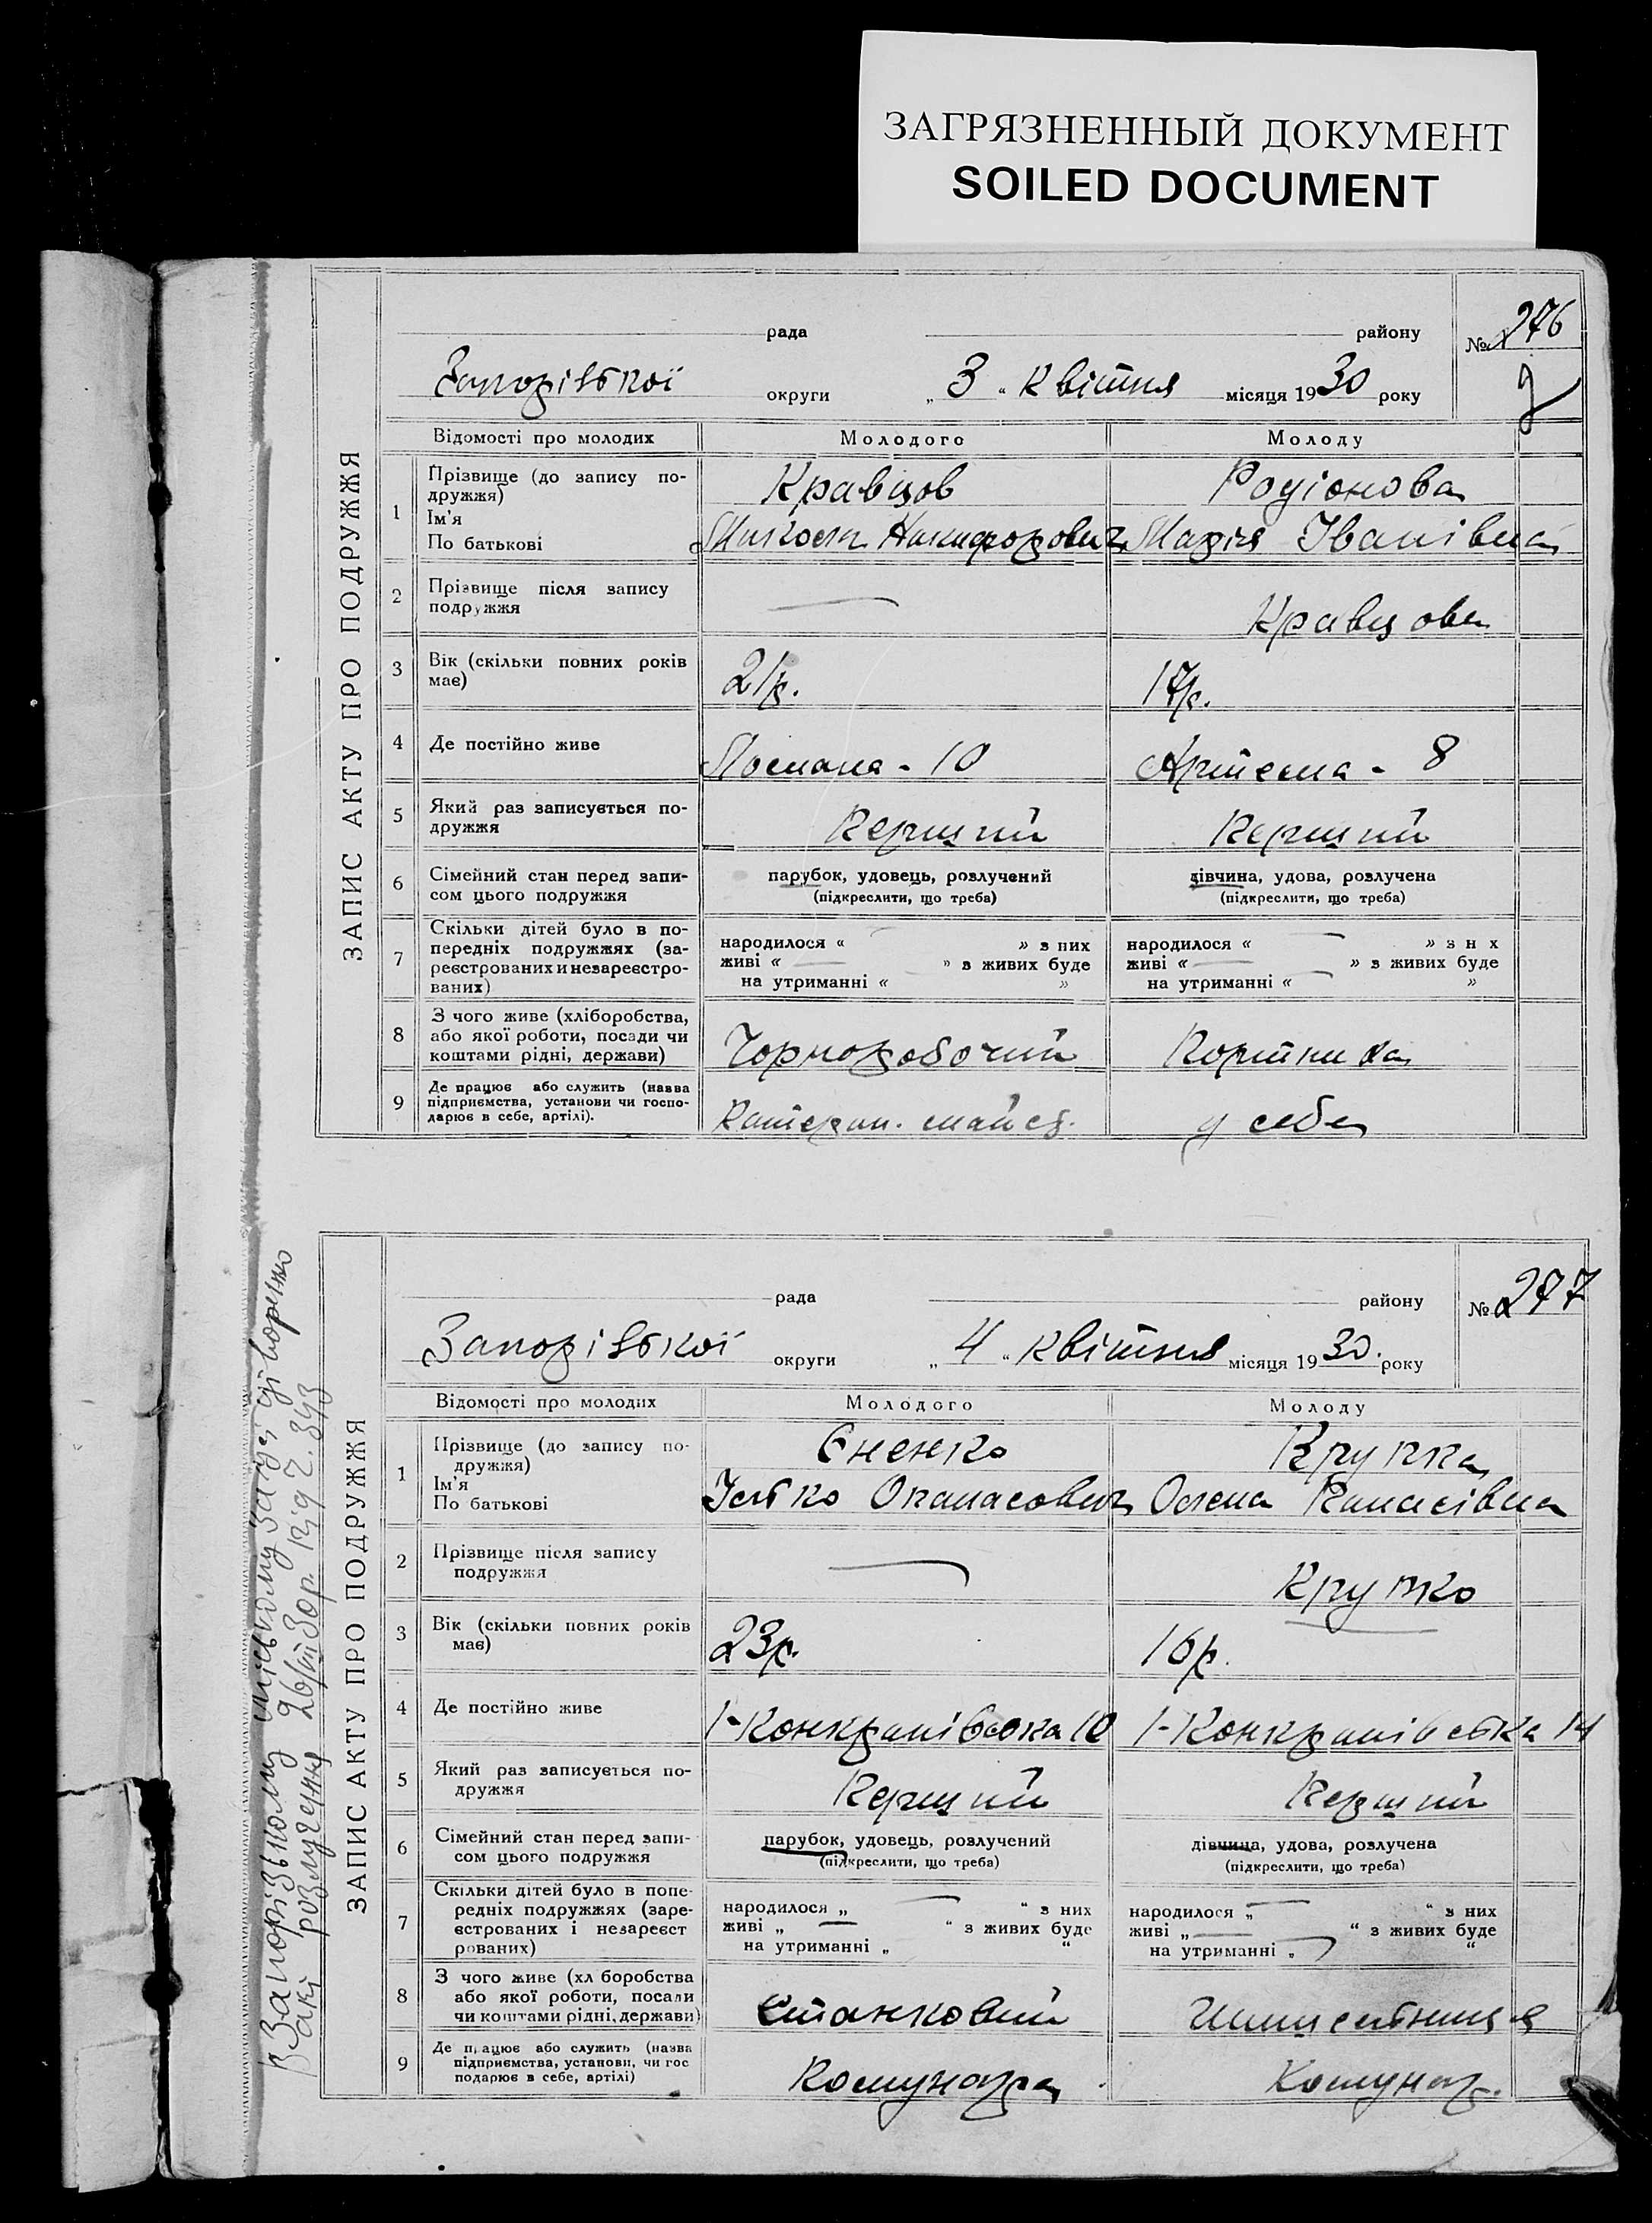 ЗАГРЯЗНЕННЫЙ ДОКУМЕНТ
SOILED DOCUMENT
ЗАПИС АКТУ ПРО ПОДРУЖЖЯ
рада району № 276
Запорізької округи „ 3 “ Квітня місяця 1930 року
Відомості про молодих Молодого Молоду
1 Прізвище (до запису по-
дружжя)
Ім'я
По батькові
Кравцов Родіонова
Микола Никифорович Марія Іванівна
2 Прізвище після запису
подружжя
— Кравцова
3 Вік (скільки повних років
має)
21р. 17р.
4 Де постійно живе
10 Артема - 8
5 Який раз записується по-
дружжя
Перший Перший
6 Сімейний стан перед запи-
сом цього подружжя
парубок, удовець, розлучений дівчина, удова, розлучена
(підкреслити, що треба) (підкреслити, що треба)
7 Скільки дітей було в по-
передніх подружжях (за-
реєстрованих и незареєстро-
ваних)
народилося « — » з них народилося « — » з н х
живі « — » з живих буде живі « — » з живих буде
на утриманні « — » на утриманні « — »
8 З чого живе (хліборобства,
або якої роботи, посади чи
коштами рідні, держави)
Чорноробочий
9 Де працює або служить (назва
підприємства, установи чи госпо-
дарює в себе, артілі).
Катерин. майст. у себе
ЗАПИС АКТУ ПРО ПОДРУЖЖЯ
рада району № 277
Запорізької округи „ 4 “ Квітня місяця 1930. року
Відомості про молодих Молодого Молоду
1 Прізвище (до запису по-
дружжя)
Ім'я
По батькові
Єненко Крупка
Опанасович Олена Панасівна
2 Прізвище після запису
подружжя
—
3 Вік (скільки повних років
має)
23р. 16р.
4 Де постійно живе
10 14
5 Який раз записується по-
дружжя
Перший Перший
6 Сімейний стан перед запи-
сом цього подружжя
парубок, удовець, розлучений дівчина, удова, розлучена
(підкреслити, що треба) (підкреслити, що треба)
7 Скільки дітей було в попе-
редніх подружжях (заре-
єстрованих і незареєст
рованих)
народилося „ — “ з них народилося „ — “ з них
живі „ — “ з живих буде живі „ — “ з живих буде
на утриманні „ “ на утриманні „ — “
8 З чого живе (хл боробства
або якої роботи, посади
чи коштами рідні, держави)
Станковий
9 Де працює або служить (назва
підприємства, установи, чи гос
подарює в себе, артілі)
Комунара Комунар.
В Запорізькому міському загсі створено
акт розлучення 26/VII 30р. під ч. 343